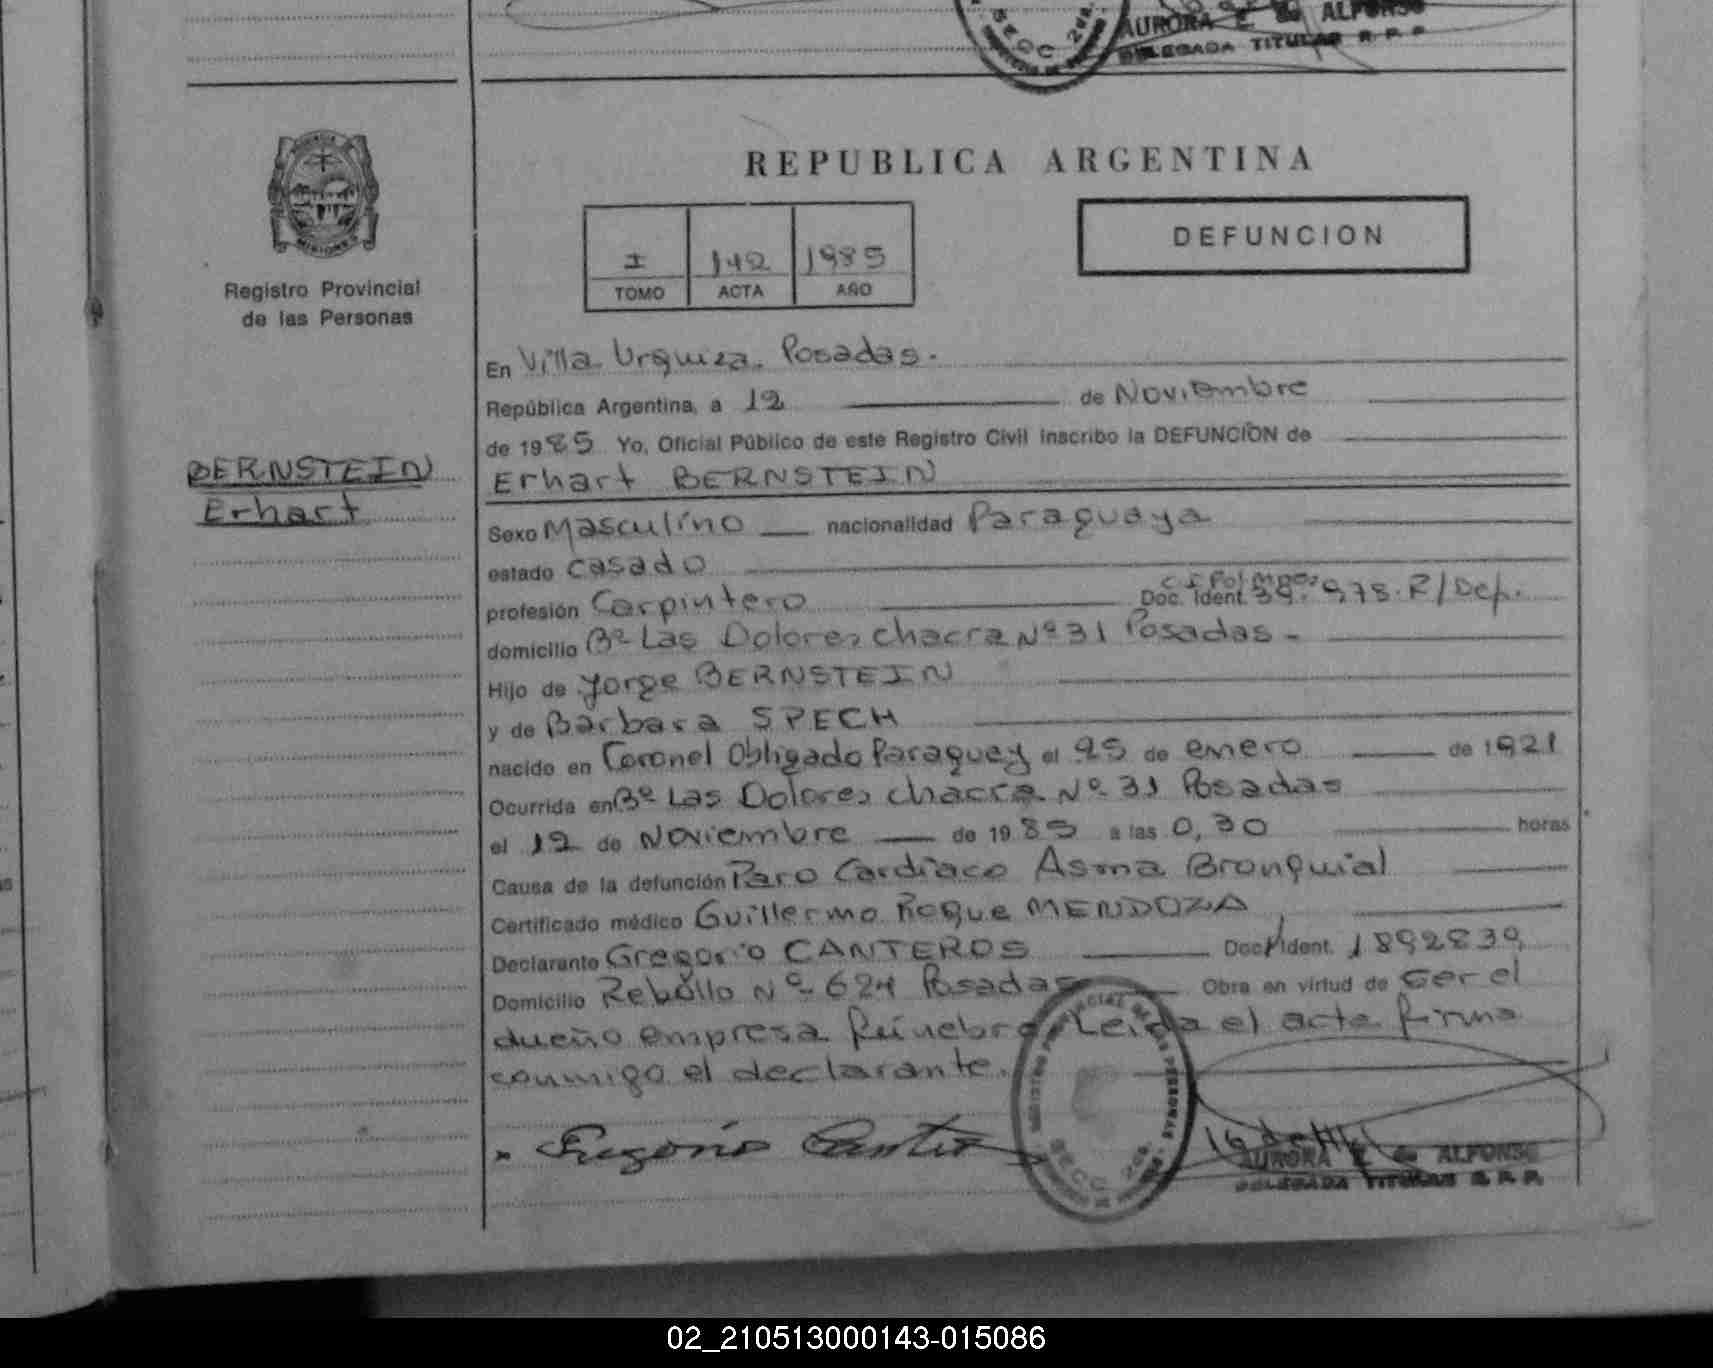 AURORA E. de ALFONSO
DELEGADA TITULAR R. P. P.
SECC. 2da.
MISIONES
Registro Provincial
de las Personas
REPUBLICA ARGENTINA
I 142 1985
TOMO ACTA AÑO
DEFUNCION
BERNSTEIN
Erhart
En Villa Urquiza. Posadas.
República Argentina, a 12 de Noviembre
de 1985 Yo, Oficial Público de este Registro Civil inscribo la DEFUNCION de
Erhart BERNSTEIN
Sexo Masculino nacionalidad Paraguaya
estado casado
profesión Carpintero Doc. Ident. 39.978.R/Dep.
domicilio Bº Las Dolores chacra Nº 31 Posadas -
Hijo de Jorge BERNSTEIN
y de Barbara SPECH
nacido en Coronel Obligado Paraguay el 25 de enero de 1921
Ocurrida en Bº Las Dolores chacra Nº 31 Posadas
el 12 de Noviembre de 1985 a las 0,30 horas
Causa de la defunción Paro Cardiaco Asma Bronquial
Certificado médico Guillermo Roque MENDOZA
Declarante Gregorio CANTEROS Doc. Ident. 1892839
Domicilio Rebollo Nº 624 Posadas Obra en virtud de ser el
dueño empresa fúnebre Leida el acta firma
conmigo el declarante.
REGISTRO PROVINCIAL DE LAS PERSONAS
SECC. 2da.
AURORA E. de ALFONSO
DELEGADA TITULAR R. P. P.
02_210513000143-015086